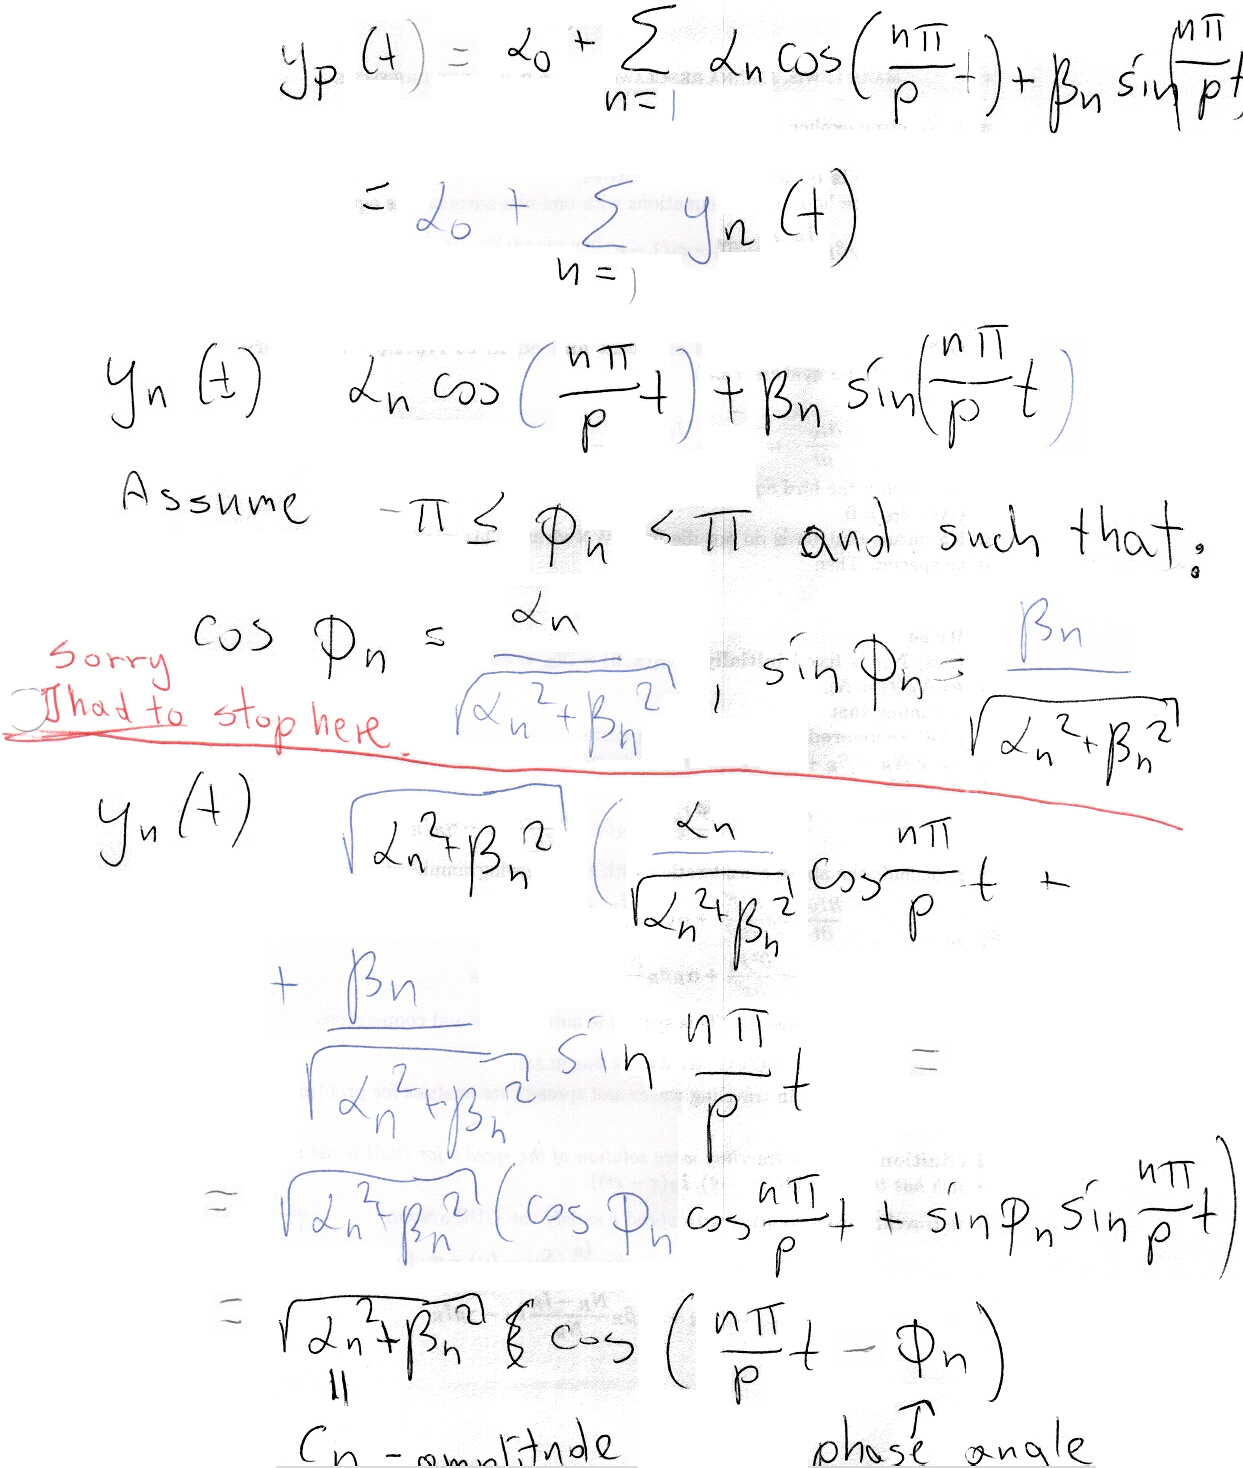 yp(t) = α0 + Σ n=1 αn cos(nπ/p t) + βn sin(nπ/p t)
= α0 + Σ n=1 yn(t)
yn(t) αn cos(nπ/p t) + βn sin(nπ/p t)
Assume -π ≤ φn < π and such that:
cos φn = αn/√(αn² + βn²), sin φn = βn/√(αn² + βn²)
sorry
I had to stop here.
yn(t) √(αn² + βn²) (αn/√(αn² + βn²) cos nπ/p t +
+ βn/√(αn² + βn²) sin nπ/p t =
= √(αn² + βn²) (cos φn cos nπ/p t + sin φn sin nπ/p t)
= √(αn² + βn²) cos(nπ/p t - φn)
Cn - amplitude phase angle